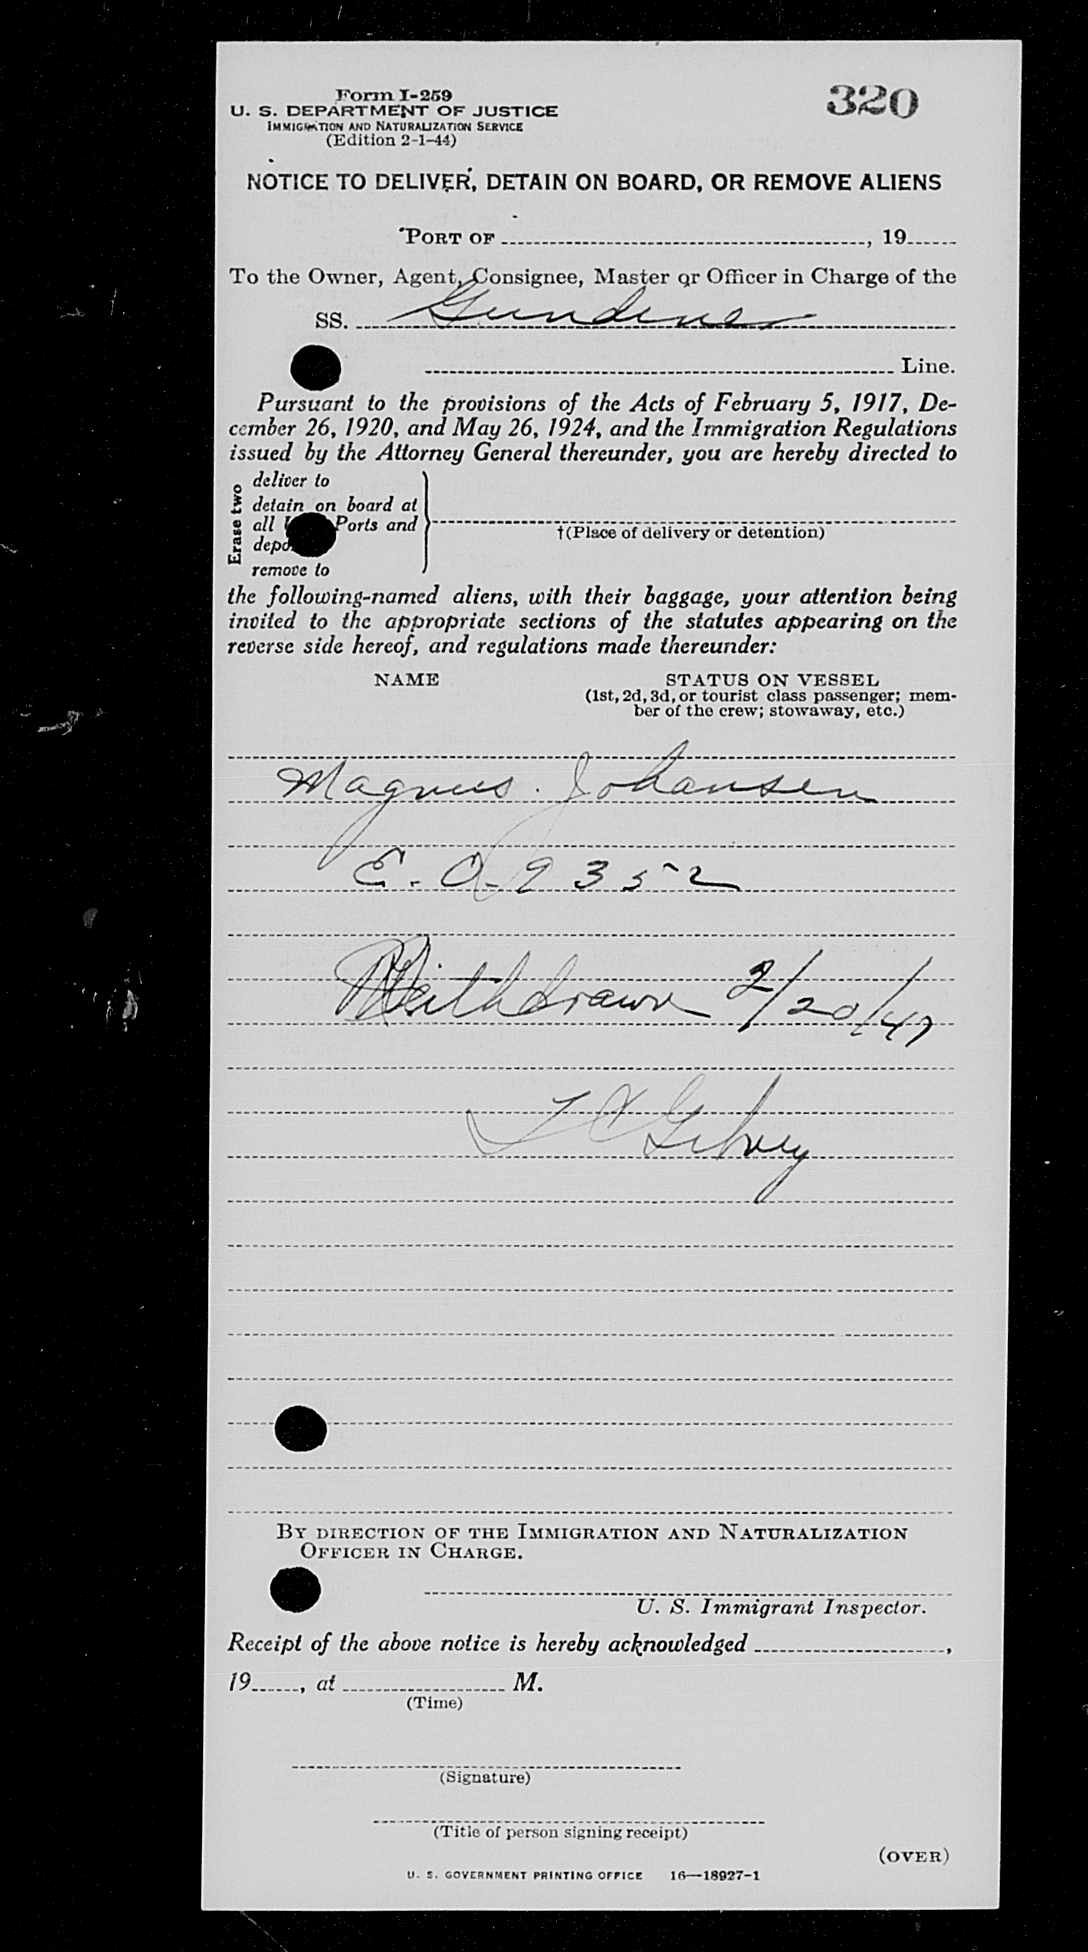 Form I-259
320
U. S. DEPARTMENT OF JUSTICE
IMMIGRATION AND NATURALIZATION SERVICE
(Edition 2-1-44)
NOTICE TO DELIVER, DETAIN ON BOARD, OR REMOVE ALIENS
PORT OF , 19
To the Owner, Agent, Consignee, Master or Officer in Charge of the
SS.
Line.
Pursuant to the provisions of the Acts of February 5, 1917, De-
cember 26, 1920, and May 26, 1924, and the Immigration Regulations
issued by the Attorney General thereunder, you are hereby directed to
Erase two
deliver to
detain on board at
all Ports and
remove to
†(Place of delivery or detention)
the following-named aliens, with their baggage, your attention being
invited to the appropriate sections of the statutes appearing on the
reverse side hereof, and regulations made thereunder:
NAME STATUS ON VESSEL
(1st, 2d, 3d, or tourist class passenger; mem-
ber of the crew; stowaway, etc.)
Magnus Johansen
E.O. 9352
Withdrawn 2/20/47
BY DIRECTION OF THE IMMIGRATION AND NATURALIZATION
OFFICER IN CHARGE.
U. S. Immigrant Inspector.
Receipt of the above notice is hereby acknowledged ,
19 , at M.
(Time)
(Signature)
(Title of person signing receipt)
(OVER)
U. S. GOVERNMENT PRINTING OFFICE 16—18927-1